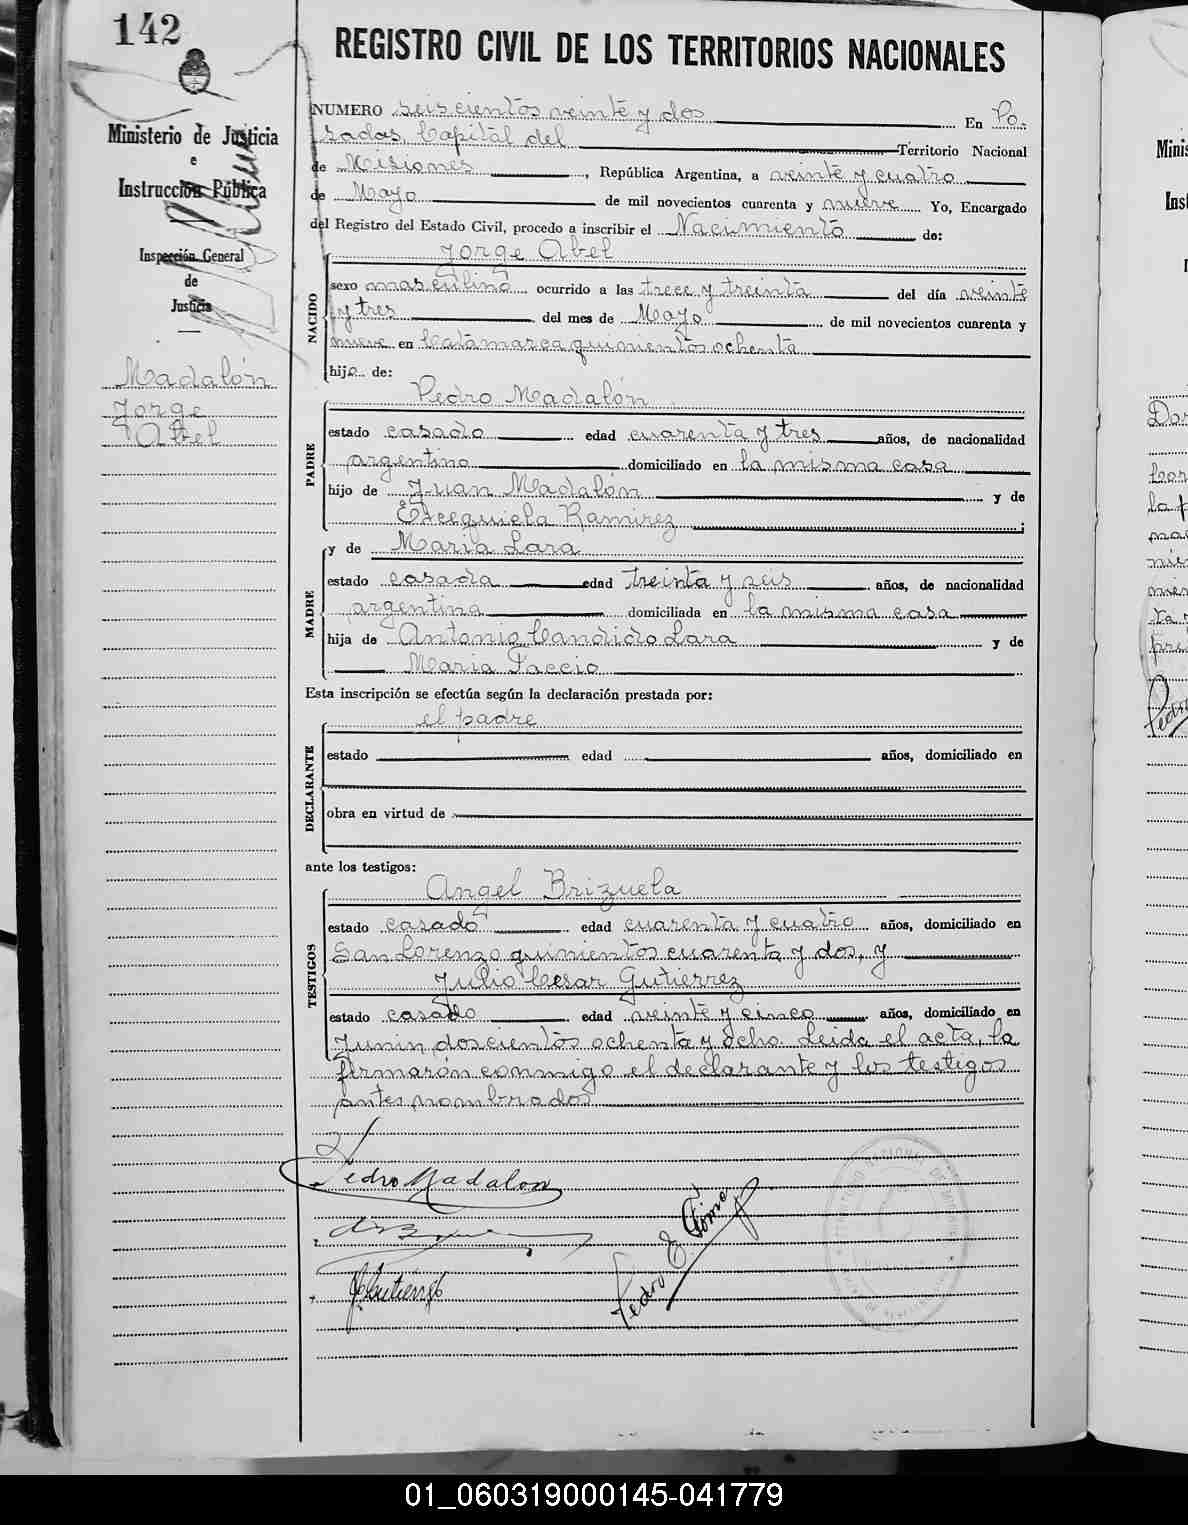 142
REGISTRO CIVIL DE LOS TERRITORIOS NACIONALES
Ministerio de Justicia
e
Instrucción Pública
Inspección General
de
Justicia
Madalón
Jorge
Abel
NUMERO seiscientos veinte y dos En Po-
sadas, Capital del Territorio Nacional
de Misiones, República Argentina, a veinte y cuatro
de Mayo de mil novecientos cuarenta y nueve Yo, Encargado
del Registro del Estado Civil, procedo a inscribir el Nacimiento de:
Jorge Abel
NACIDO
sexo masculino ocurrido a las trece y treinta del día veinte
y tres del mes de Mayo de mil novecientos cuarenta y
nueve en Catamarca quinientos ochenta
hijo de:
Pedro Madalón
PADRE
estado casado edad cuarenta y tres años, de nacionalidad
argentino domiciliado en la misma casa
hijo de Juan Madalón y de
Ramirez
y de Maria Lara
MADRE
estado casada edad treinta y seis años, de nacionalidad
argentina domiciliada en la misma casa
hija de Antonio Candido Lara y de
Maria Faccio
Esta inscripción se efectúa según la declaración prestada por:
el padre
DECLARANTE
estado edad años, domiciliado en
obra en virtud de
ante los testigos:
Angel Brizuela
TESTIGOS
estado casado edad cuarenta y cuatro años, domiciliado en
San Lorenzo quinientos cuarenta y dos, y
Julio Cesar Gutierrez
estado casado edad veinte y cinco años, domiciliado en
Junin doscientos ochenta y ocho. Leida el acta, la
firmarón conmigo el declarante y los testigos
antes nombrados
Pedro Madalon
Gutierrez
Pedro E.
01_060319000145-041779